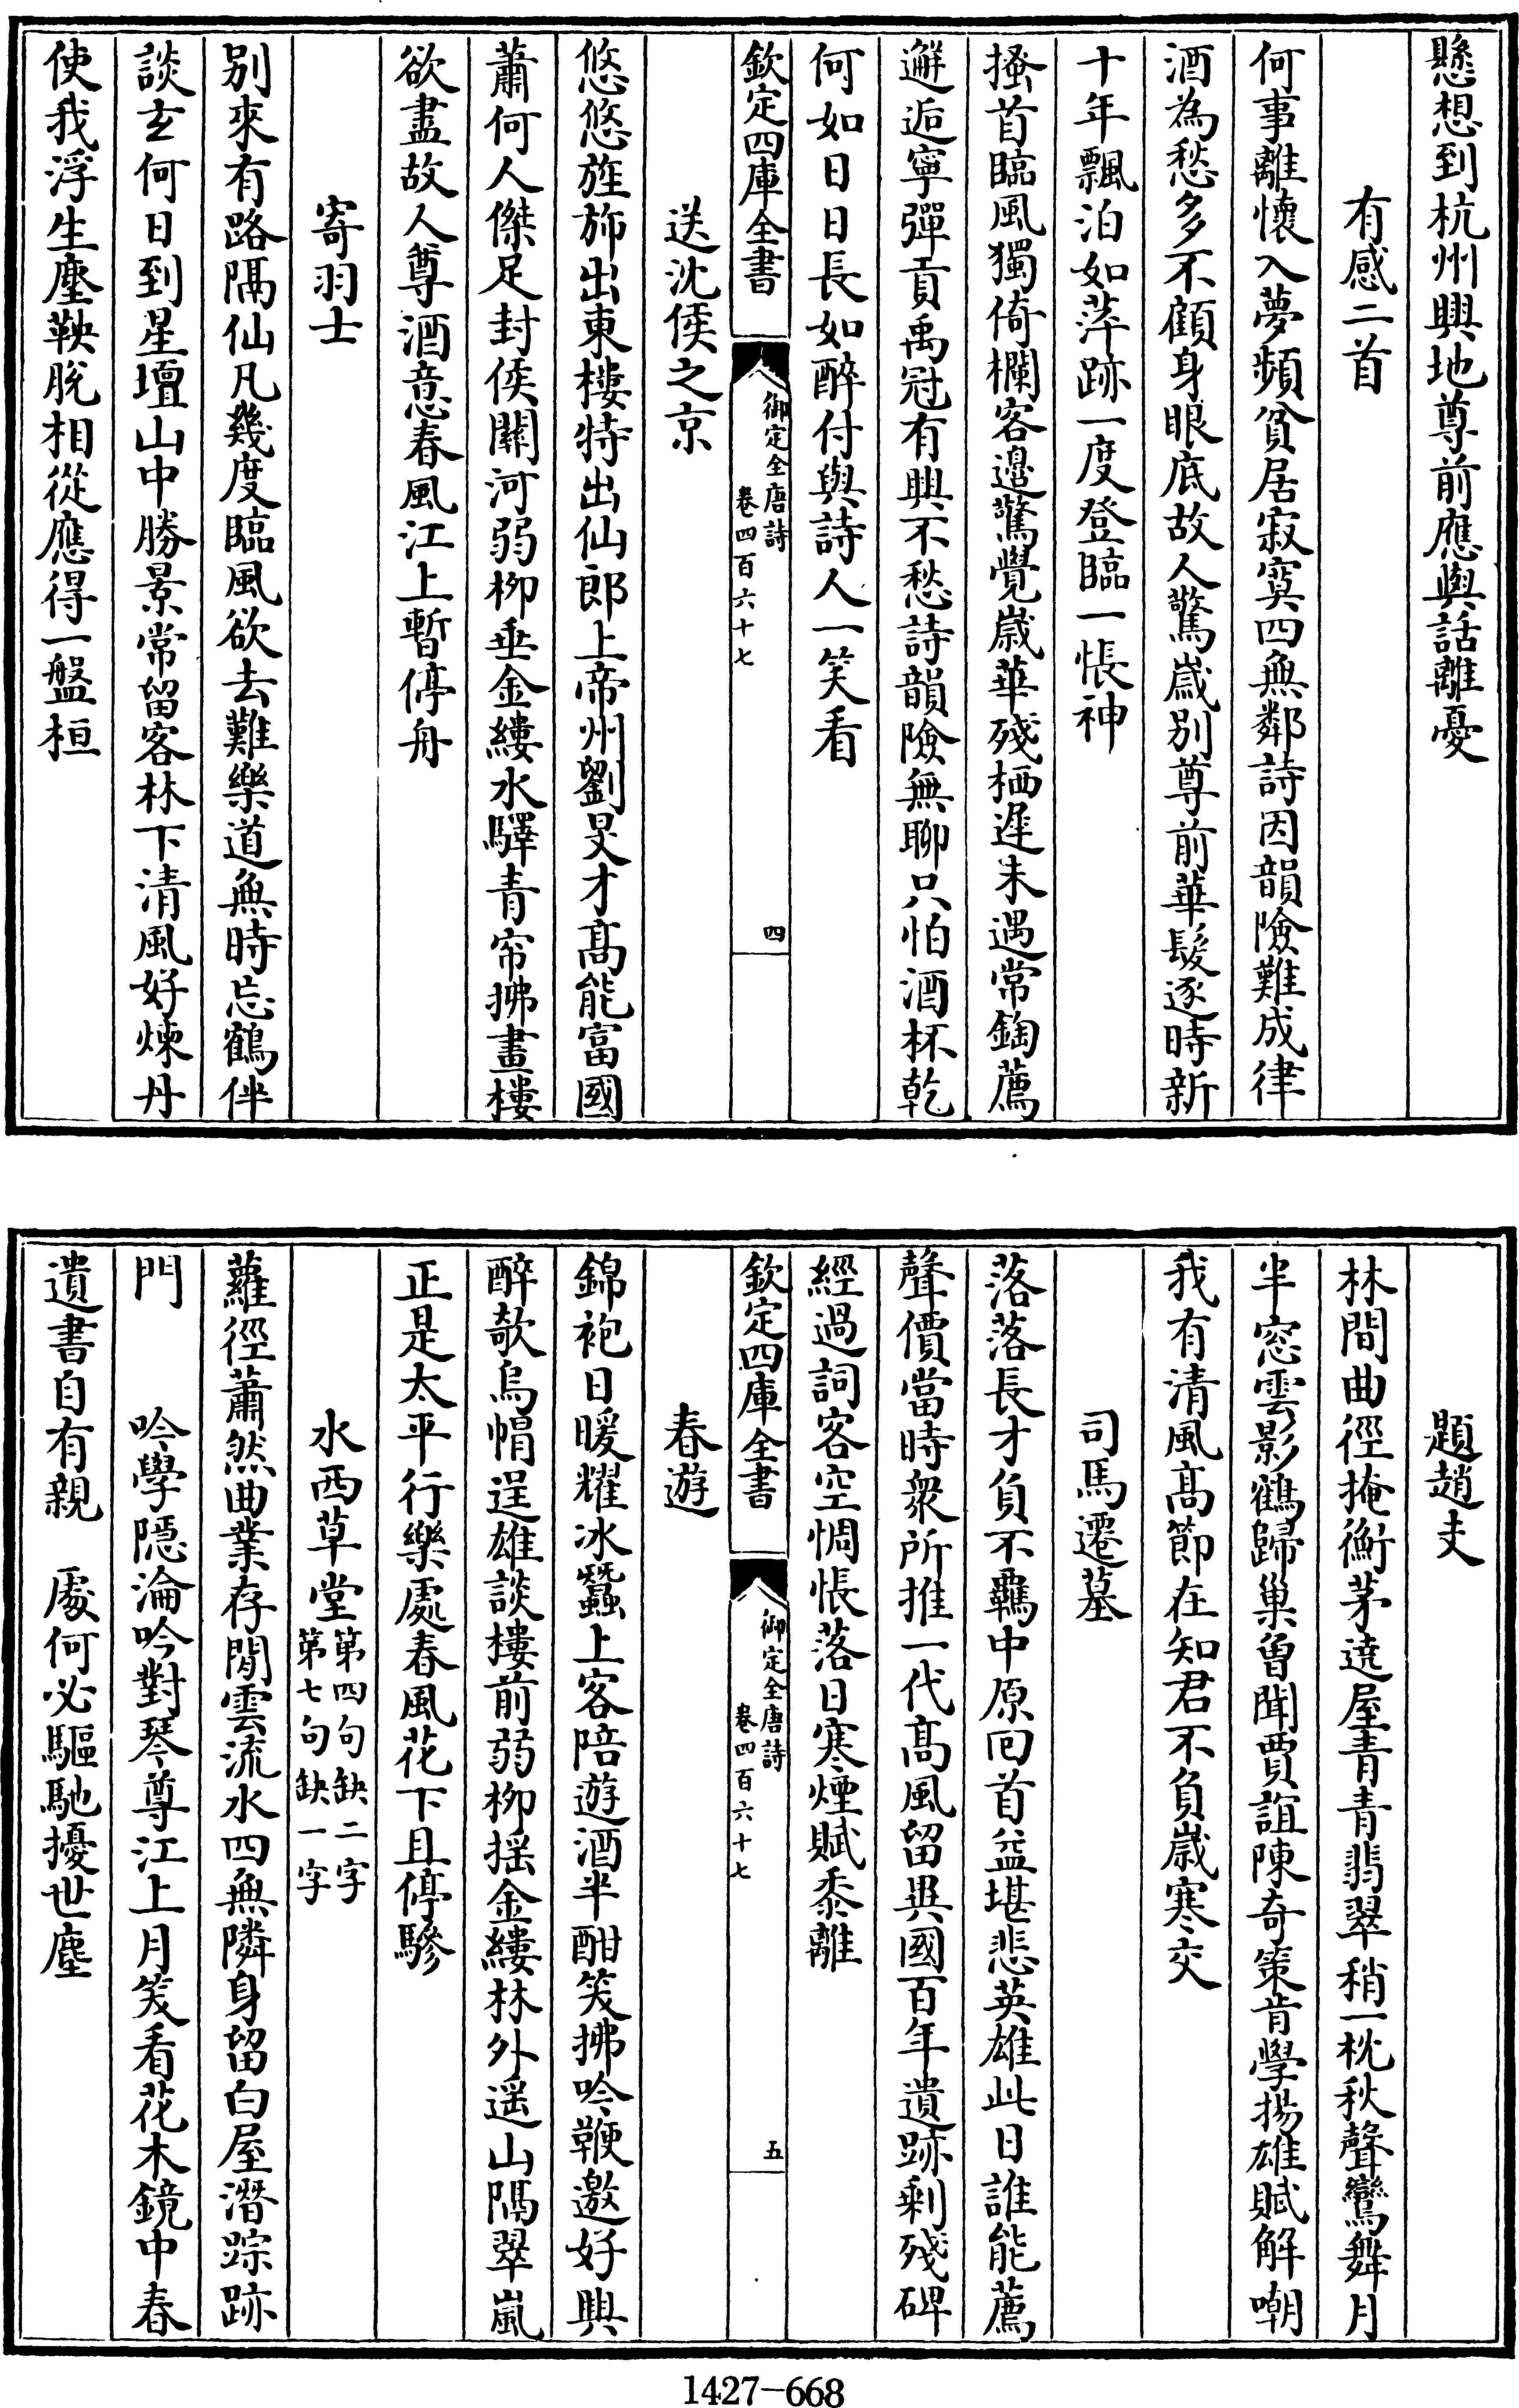 懸想到杭州興地尊前應與話離憂
有感二首
何事離懷入夢頻貧居寂寞四無鄰詩因韻險難成律
酒為愁多不顧身眼底故人驚歲别尊前華髮逐時新
十年飄泊如萍跡一度登臨一悵神
搔首臨風獨倚欄客邉驚覺歲華殘栖遲未遇常鍧薦
邂逅寧彈貢禹冠有興不愁詩韻險無聊只怕酒杯乾
何如日日長如醉付與詩人一笑看
欽定四庫全書
御定全唐詩
卷四百六十七
四
送沈侯之京
悠悠旌斾出東樓特出仙郎上帝州劉旻才高能富國
蕭何人傑足封侯關河弱栁垂金縷水驛青帘拂畫樓
欲盡故人尊酒意春風江上暫停舟
寄羽士
别來有路隔仙凡幾度臨風欲去難樂道無時忘鶴伴
談玄何日到星壇山中勝景常留客林下清風好煉丹
使我浮生塵鞅脱相從應得一盤桓
題趙支
林間曲徑掩衡茅遶屋青青翡翠稍一枕秋聲鸞舞月
半窓雲影鶴歸巢曽聞賈誼陳奇策肯學揚雄賦解嘲
我有清風高節在知君不負歲寒交
司馬遷墓
落落長才負不羈中原囘首益堪悲英雄此日誰能薦
聲價當時衆所推一代高風留異國百年遺跡剩殘碑
經過詞客空惆悵落日寒煙賦黍離
欽定四庫全書
御定全唐詩
卷四百六十七
五
春遊
錦袍日暖耀冰蠶上客陪遊酒半酣笑拂吟鞭邀好興
醉欹烏帽逞雄談樓前弱栁揺金縷林外遥山隔翠嵐
正是太平行樂處春風花下且停驂
水西草堂第四句缺二字第七句缺一字
蘿徑蕭然曲業存閒雲流水四無隣身留白屋潛踪跡
門　　吟學隱淪吟對琴尊江上月笑看花木鏡中春
遺書自有親　處何必驅馳擾世塵
1427-668